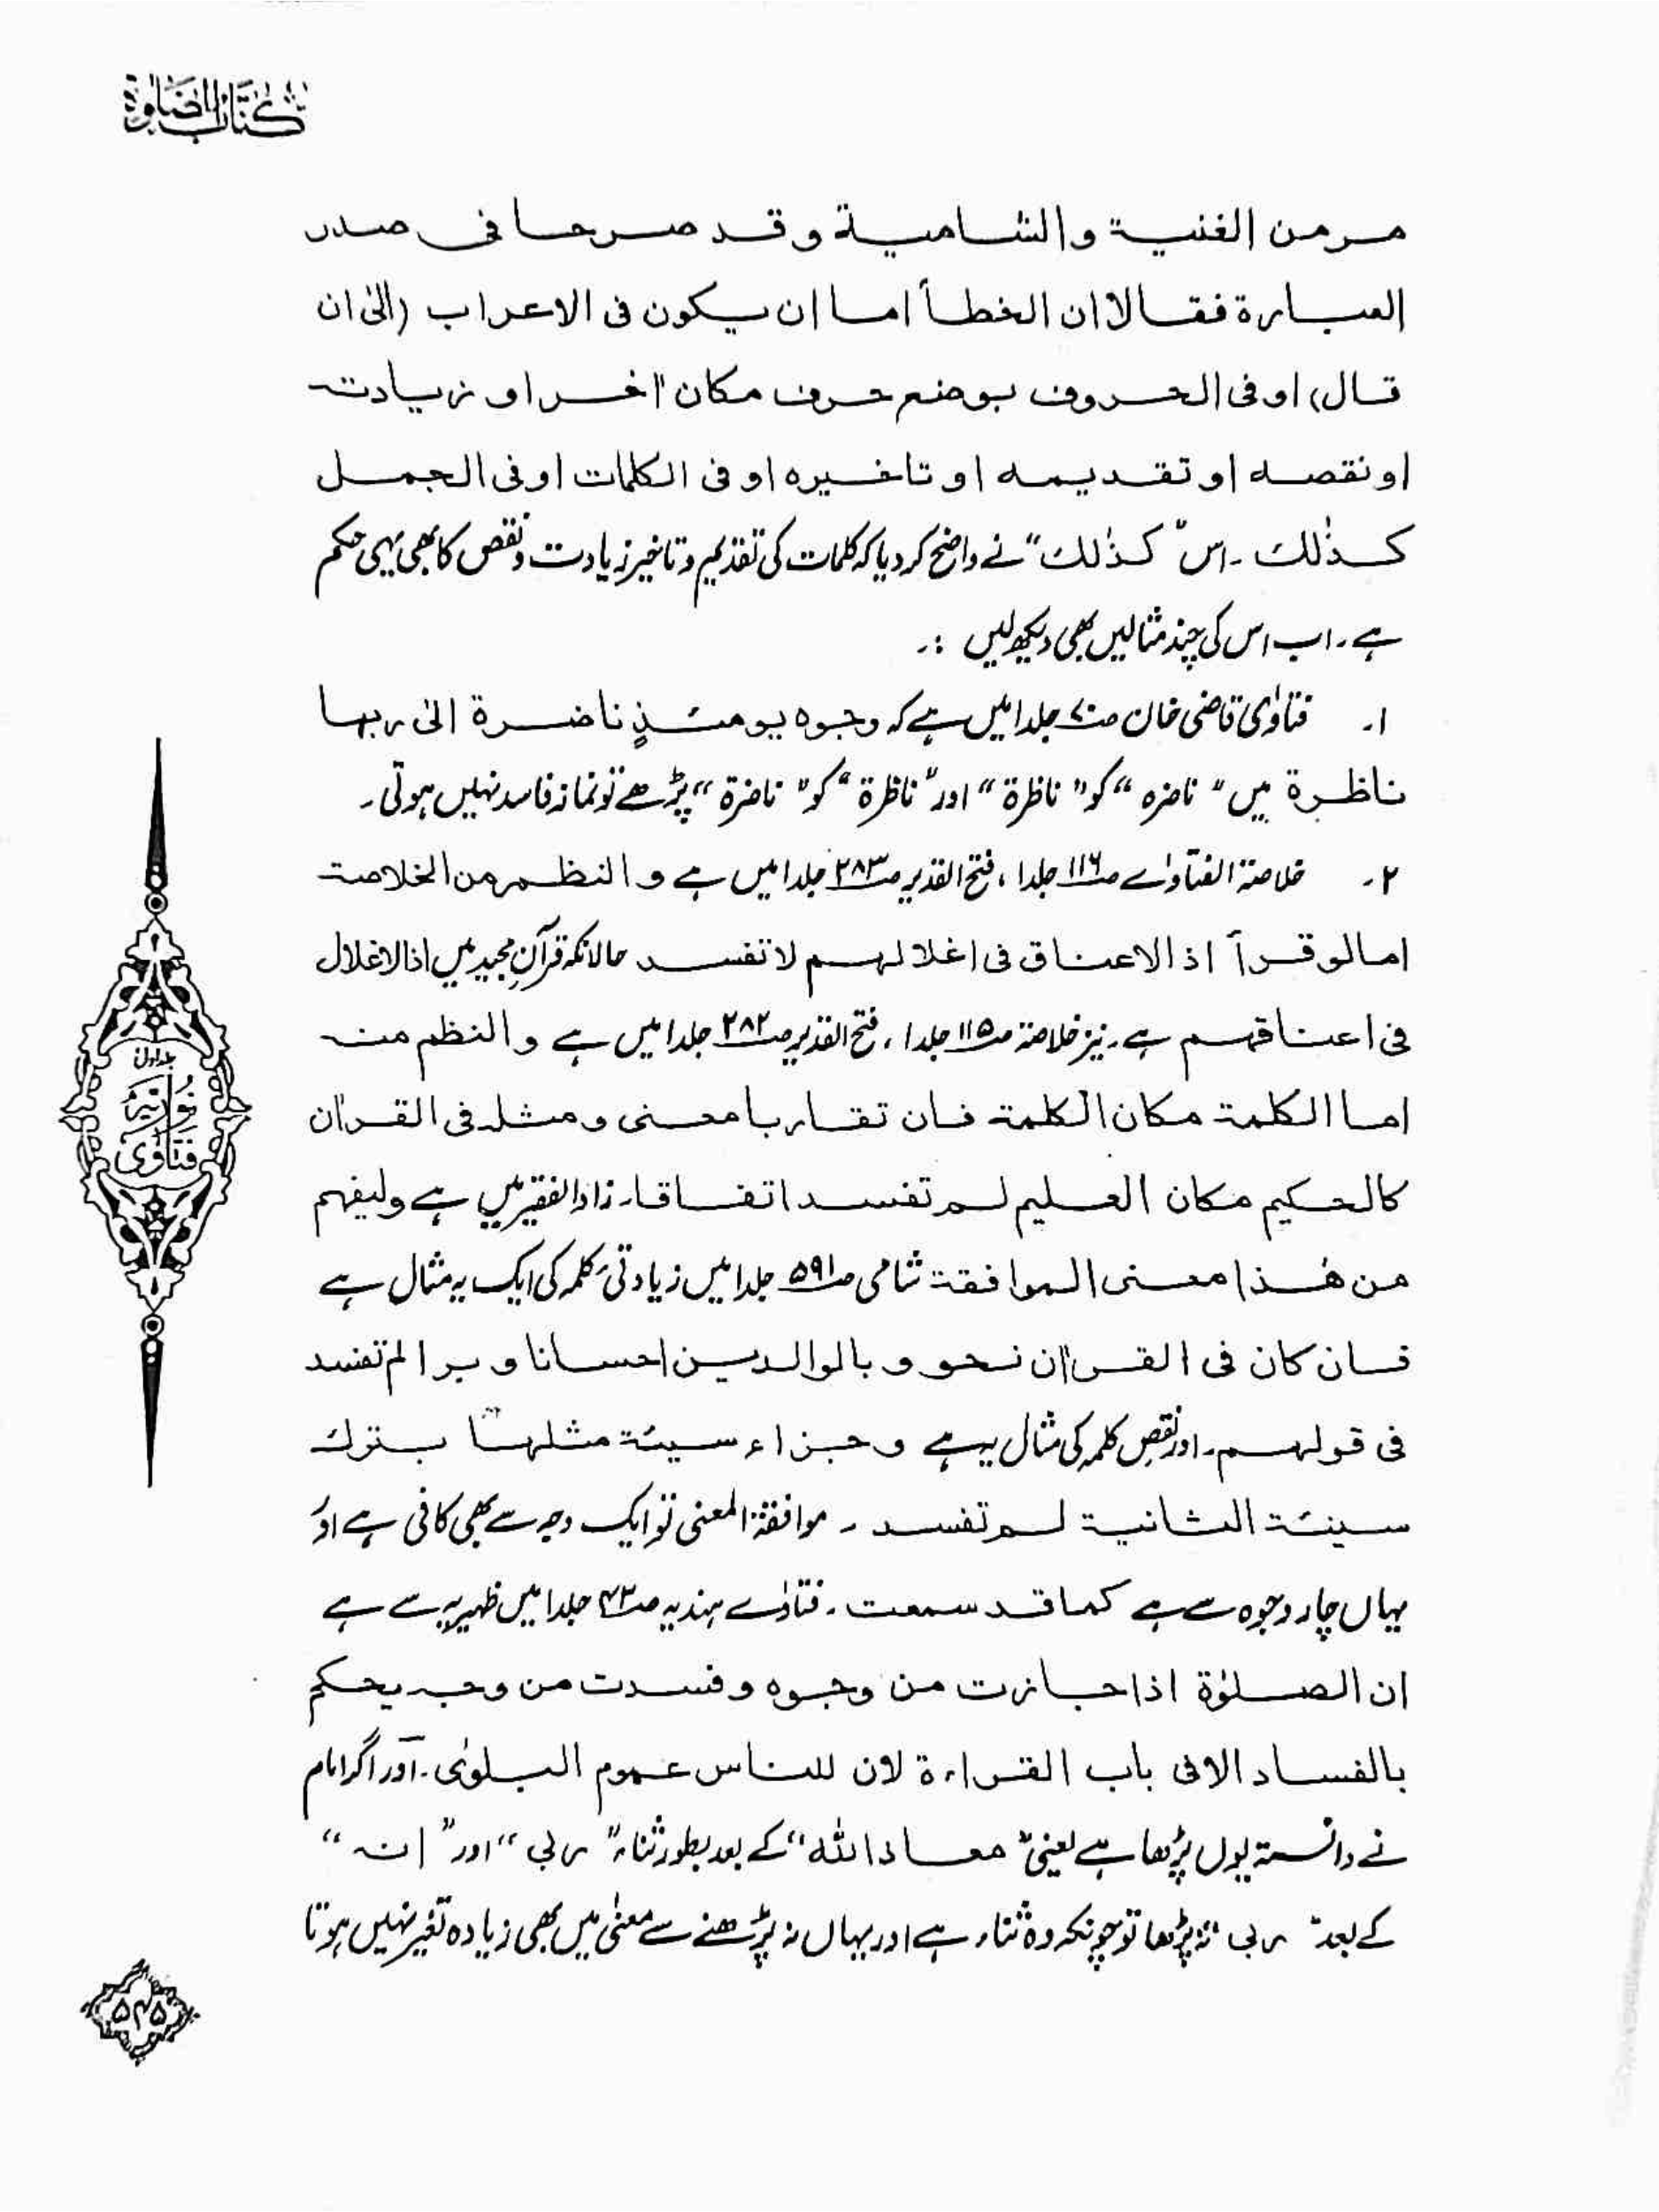 کتاب الصلوٰة
مر من الغنیة والشامیة وقد صرحا فی صدر
العبارة فقالا ان الخطأ اما ان یکون فی الاعراب (الیٰ ان
قال) او فی الحروف بوضع حرف مکان اٰخر او زیادتہ
او نقصہ او تقدیمہ او تاخیرہ او فی الکلمات او فی الجمل
کذٰلک ۔ اس ”کذٰلک“ نے واضح کر دیا کہ کلمات کی تقدیم و تاخیر زیادت و نقص کا بھی یہی حکم
ہے ۔ اب اس کی چند مثالیں بھی دیکھ لیں :۔
۱۔ فتاوٰی قاضی خان ص۷۰ جلد۱ میں ہے کہ وجوہ یومئذٍ ناضرة الیٰ ربہا
ناظرة میں ”ناضرہ“ کو ”ناظرة“ اور ”ناظرة“ کو ”ناضرة“ پڑھے تو نماز فاسد نہیں ہوتی ۔
۲۔ خلاصة الفتاوٰے ص۱۱۶ جلد۱ ، فتح القدیر ص۲۸۳ جلد۱ میں ہے والنظم من الخلاصة
اما لو قرأ اذ الاعناق فی اغلالہم لا تفسد حالانکہ قرآنِ مجید میں اذ الاغلال
فی اعناقہم ہے ۔ نیز خلاصة ص۱۱۵ جلد۱ ، فتح القدیر ص۲۸۲ جلد۱ میں ہے والنظم منہ
اما الکلمة مکان الکلمة فان تقاربا معنی ومثلہ فی القراٰن
کالحکیم مکان العلیم لم تفسد اتفاقا۔ زاد الفقیر میں ہے ولیفہم
من ھٰذا معنی الموافقة شامی ص۵۹۱ جلد۱ میں زیادتیٔ کلمہ کی ایک یہ مثال ہے
فان کان فی القراٰن نحو و بالوالدین احسانا و برا لم تفسد
فی قولہم۔ اور نقصِ کلمہ کی مثال یہ ہے وجزاء سیئة مثلہا بترک
سیئة الثانیة لم تفسد ۔ موافقة المعنی تو ایک وجہ سے بھی کافی ہے اور
یہاں چار وجوہ سے ہے کما قد سمعت ۔ فتاوٰے ہندیہ ص۴۳ جلد۱ میں ظہیریہ سے ہے
ان الصلوٰة اذا جازت من وجوہ وفسدت من وجہ یحکم
بالفساد الا فی باب القراءة لان للناس عموم البلوٰی ۔ اور اگر امام
نے دانستہ یوں پڑھا ہے یعنی ”معاذ اللہ“ کے بعد بطور ثناء ”ربی“ اور ”انہ“
کے بعد ”ربی“ نہ پڑھا تو چونکہ وہ ثناء ہے اور یہاں نہ پڑھنے سے معنیٰ میں بھی زیادہ تغیر نہیں ہوتا
جلد اول
نوریہ
فتاوٰی
۵۴۵